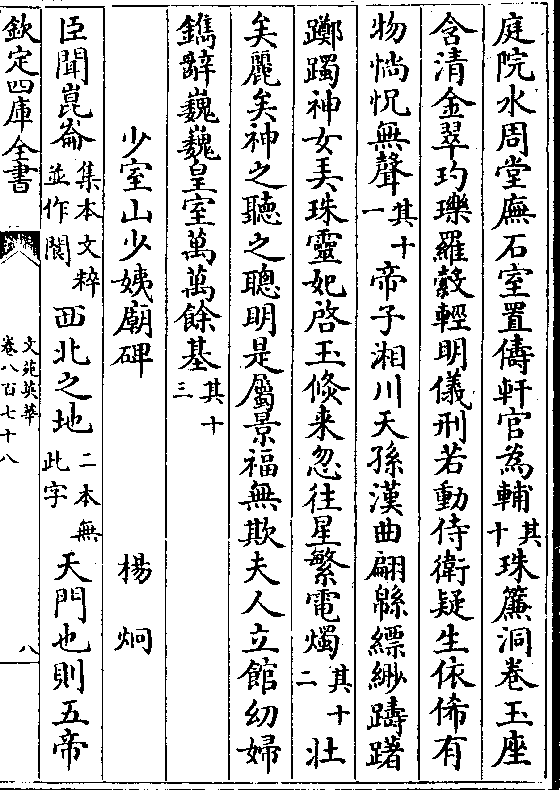 庭院水周堂廡石室置儔軒宫為輔其十珠簾洞卷玉座
含清金翠玓瓅羅縠輕明儀刑若動侍衛疑生依俙有
物惝怳無聲其十一帝子湘川天孫漢曲翩緜縹緲躊躇
躑躅神女弄珠靈妃啓玉倐来忽往星繁電燭其十二壯
矣麗矣神之聽之聰明是屬景福無欺夫人立館幼婦
鐫辭巍巍皇室萬萬餘基其十三
少室山少姨廟碑 楊烱
臣聞崑崙集本文粹並作閬西北之地二本無此字天門也則五帝
欽定四庫全書
文苑英華
卷八百七十八
八